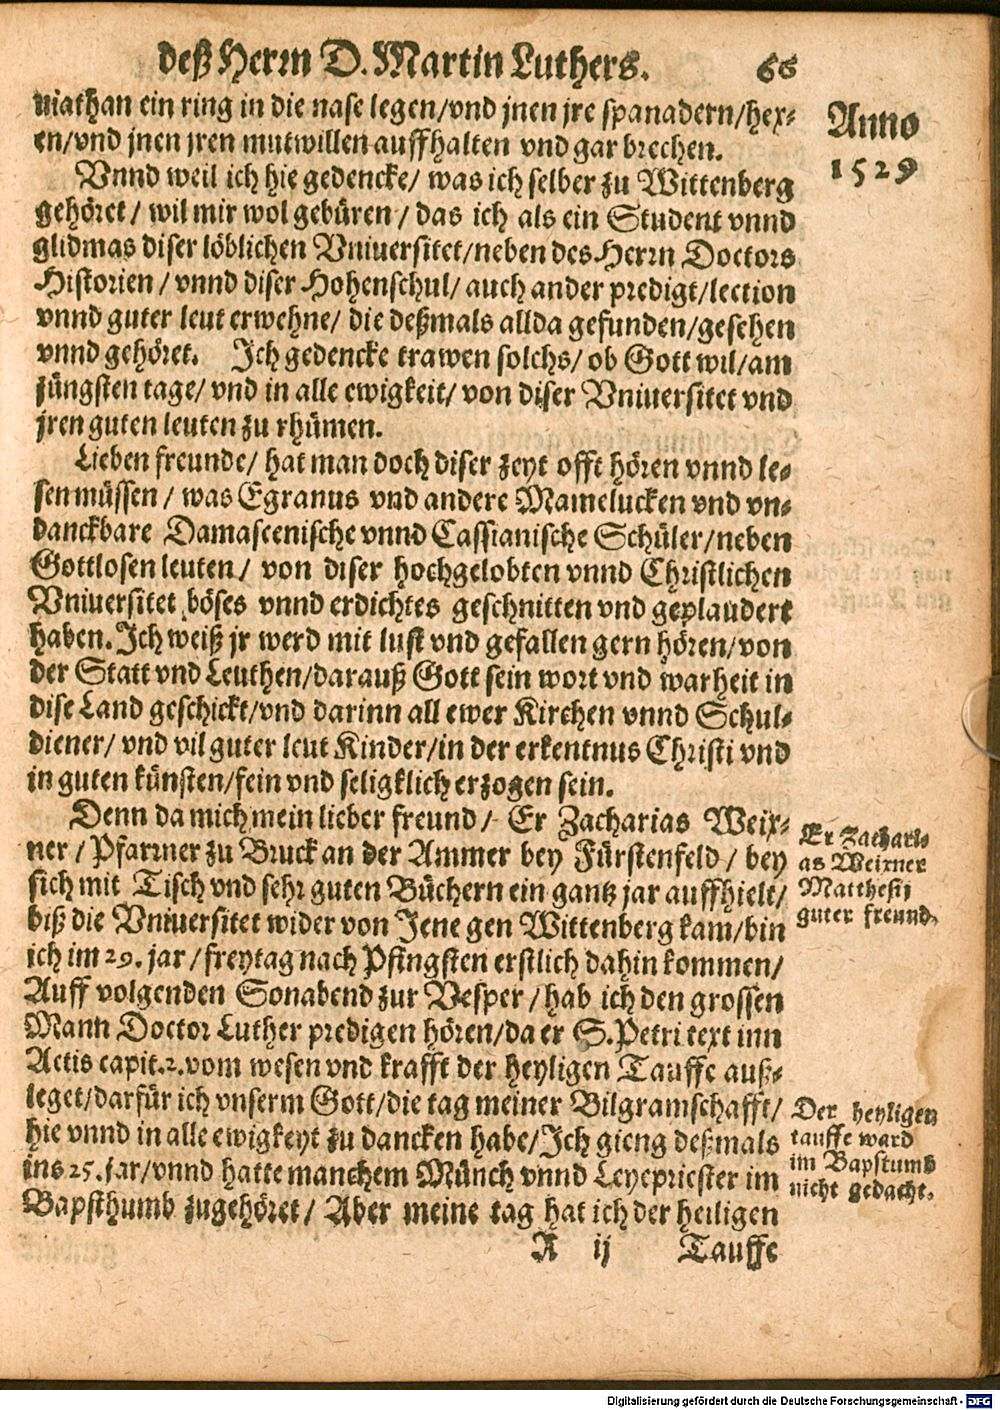 deß Herrn D. Martin Luthers. 66
niathan ein ring in die nase legen/vnd jnen jre spanadern/hex-
en/vnd jnen jren mutwillen auffhalten vnd gar brechen.
Anno
1529
Vnnd weil ich hie gedencke/ was ich selber zu Wittenberg
gehöret/ wil mir wol gebüren/ das ich als ein Student vnnd
glidmas diser löblichen Vniuersitet/neben des Herrn Doctors
Historien/ vnnd diser Hohenschul/ auch ander predigt/lection
vnnd guter leut erwehne/ die deßmals allda gefunden/gesehen
vnnd gehöret. Ich gedencke trawen solchs/ ob Gott wil/am
jüngsten tage/ vnd in alle ewigkeit/ von diser Vniuersitet vnd
jren guten leuten zu rhümen.
Lieben freunde/ hat man doch diser zeyt offt hören vnnd le-
sen müssen/ was Egranus vnd andere Mamelucken vnd vn-
danckbare Damascenische vnnd Cassianische Schüler/neben
Gottlosen leuten/ von diser hochgelobten vnnd Christlichen
Vniuersitet böses vnnd erdichtes geschnitten vnd geplaudert
haben. Ich weiß jr werd mit lust vnd gefallen gern hören/von
der Statt vnd Leuthen/darauß Gott sein wort vnd warheit in
dise Land geschickt/vnd darinn all ewer Kirchen vnnd Schul-
diener/ vnd vil guter leut Kinder/in der erkentnus Christi vnd
in guten künsten/fein vnd seligklich erzogen sein.
Denn da mich mein lieber freund/ Er Zacharias Weix-
ner/ Pfarrner zu Bruck an der Ammer bey Fürstenfeld/ bey
sich mit Tisch vnd sehr guten Büchern ein gantz jar auffhielt/
biß die Vniuersitet wider von Jene gen Wittenberg kam/bin
ich im 29. jar/freytag nach Pfingsten erstlich dahin kommen/
Auff volgenden Sonabend zur Vesper/ hab ich den grossen
Mann Doctor Luther predigen hören/da er S. Petri text inn
Actis capit.2. vom wesen vnd krafft der heyligen Tauffe auß-
leget/darfür ich vnserm Gott/die tag meiner Bilgramschafft/
hie vnnd in alle ewigkeyt zu dancken habe/Ich gieng deßmals
ins 25. jar/vnnd hatte manchem Münch vnnd Leyepriester im
Bapsthumb zugehöret/ Aber meine tag hat ich der heiligen
R ij Tauffe
Er Zachari-
as Weixner
Matthesij
guter freund.
Der heyligen
tauffe ward
im Bapstumb
nicht gedacht.
Digitalisierung gefördert durch die Deutsche Forschungsgemeinschaft - DFG